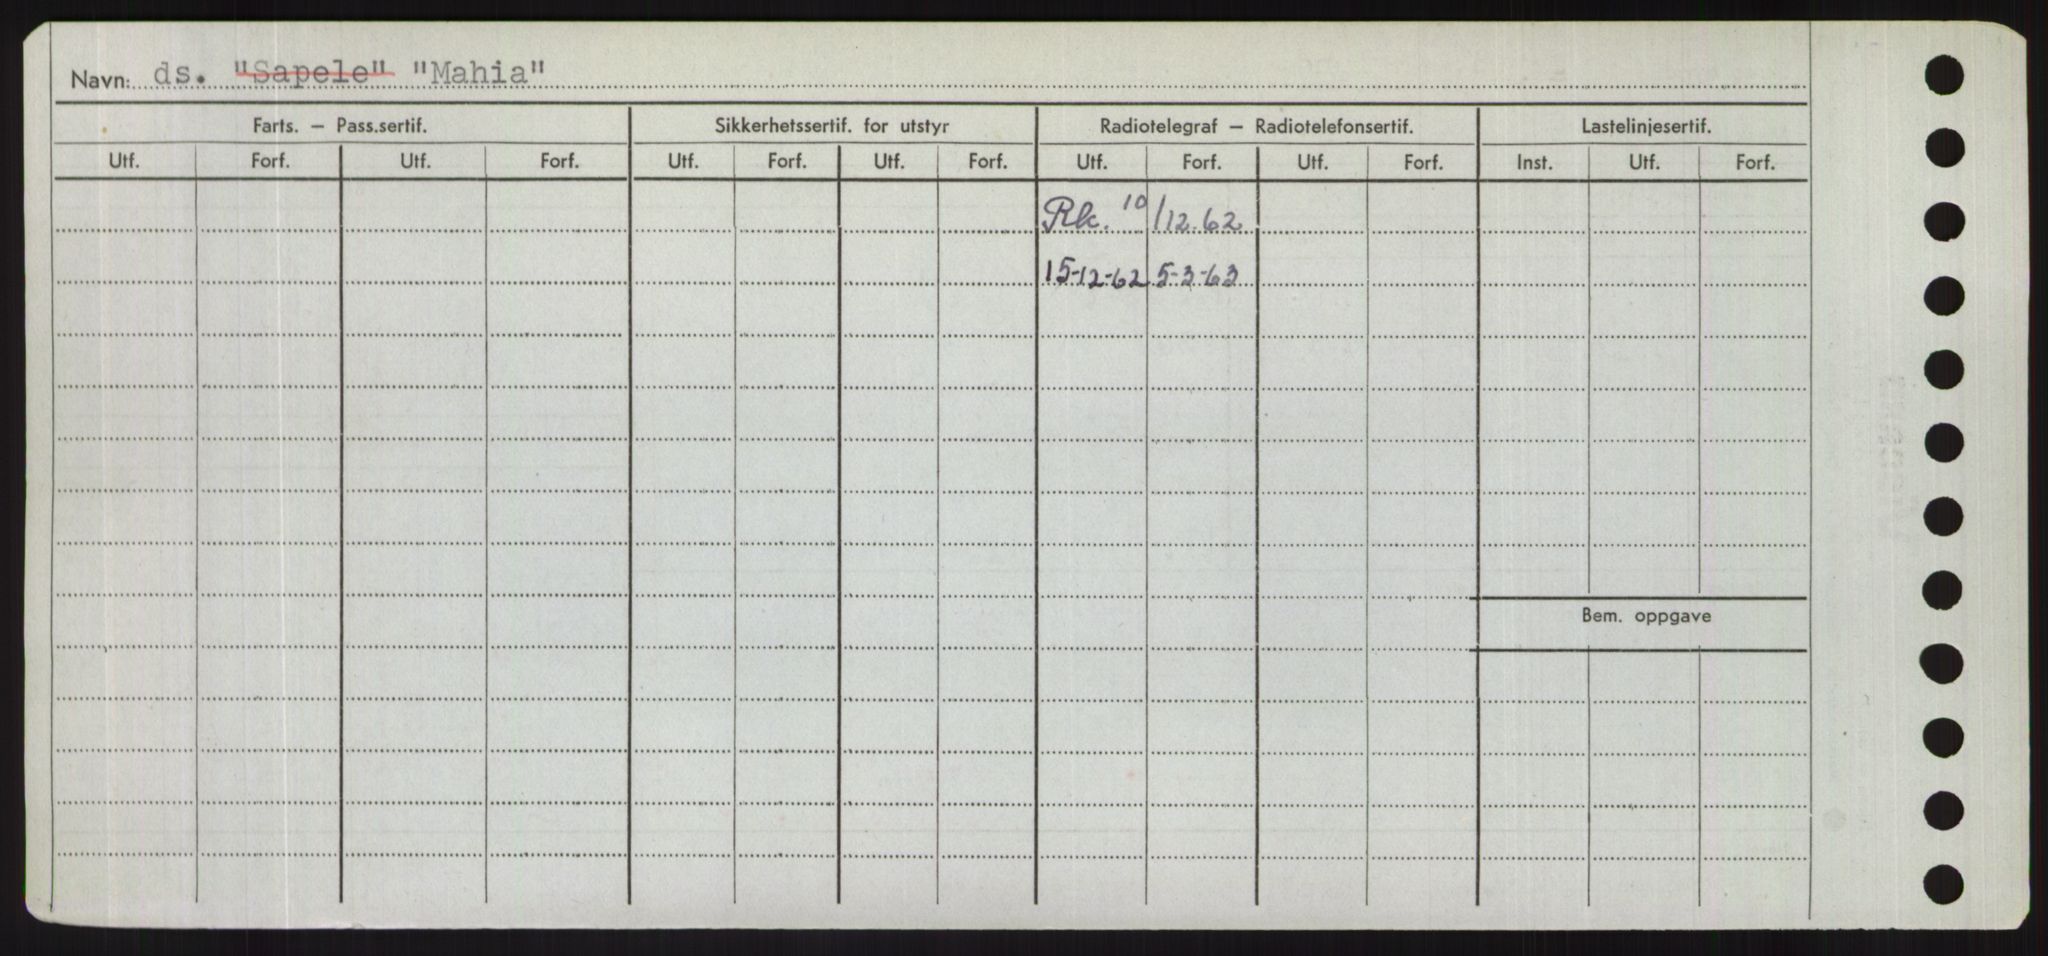 Navn: ds. "Sapele" "Mahia"
Farts. – Pass.sertif. Sikkerhetssertif. for utstyr Radiotelegraf – Radiotelefonsertif. Lastelinjesertif.
Utf. Forf. Utf. Forf. Utf. Forf. Utf. Forf. Utf. Forf. Utf. Forf. Inst. Utf. Forf.
Rk. 10/12.62
15-12-62 5-3-63
Bem. oppgave